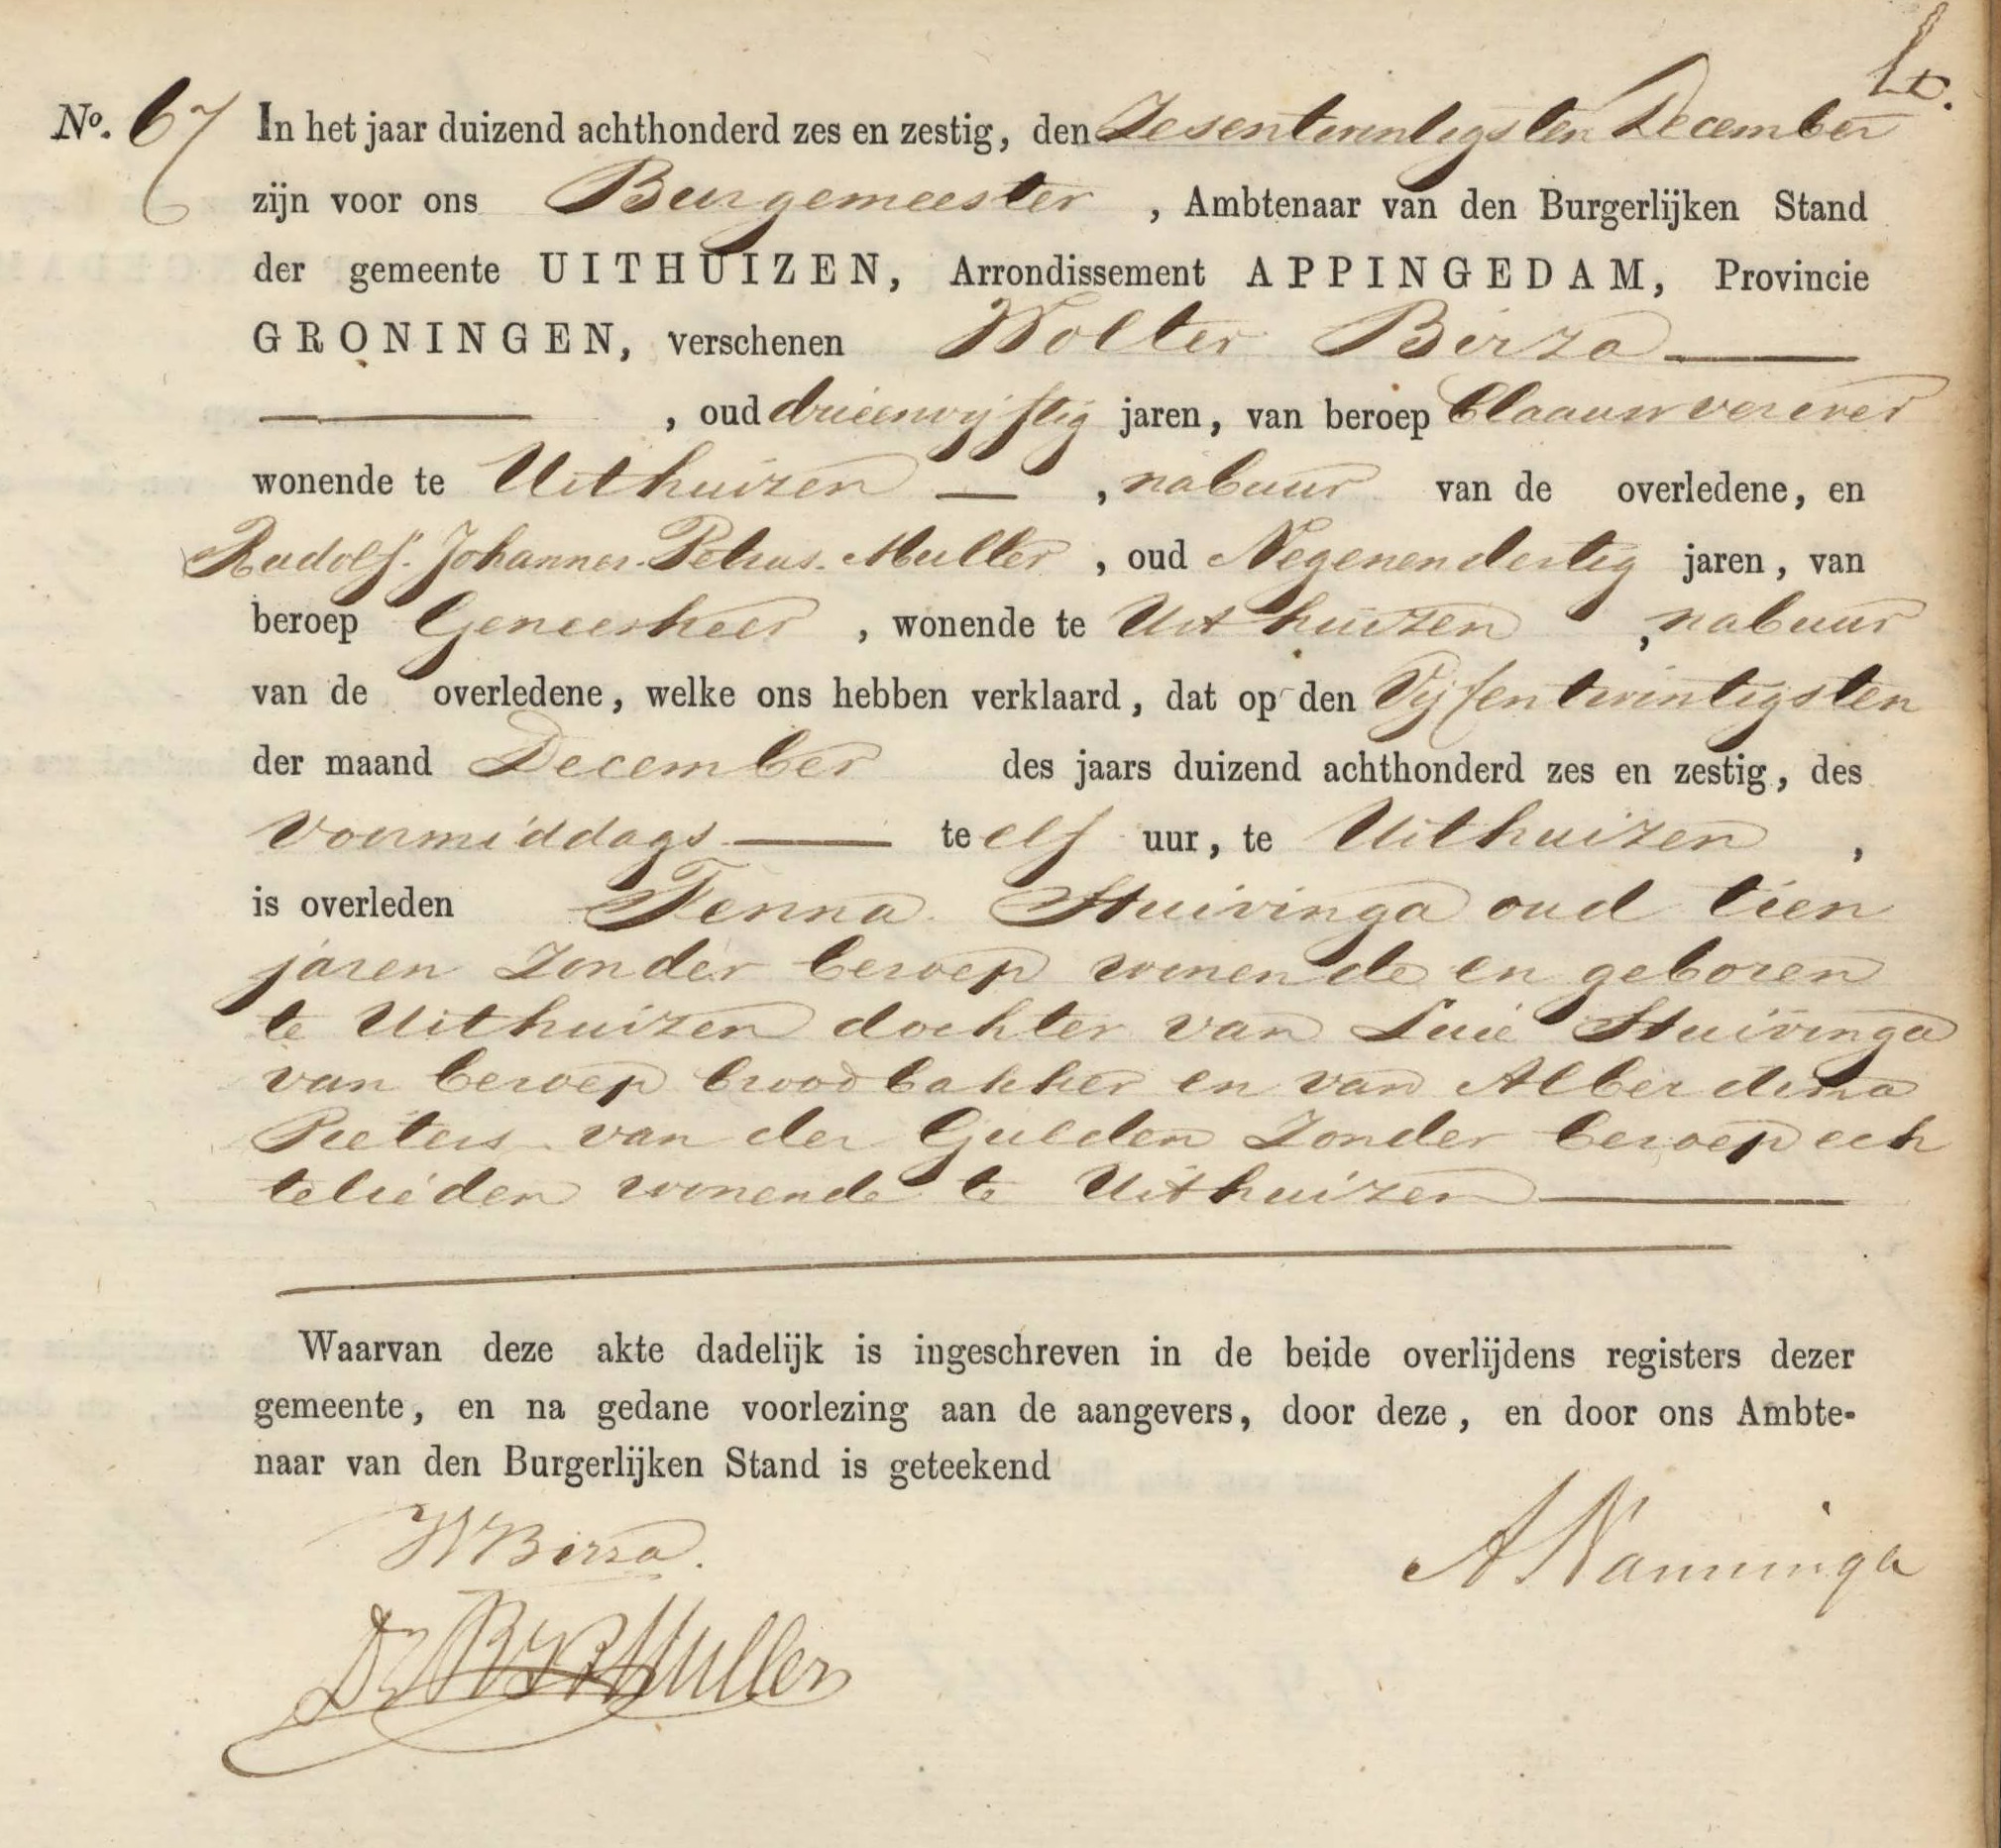 No. 67 In het jaar duizend achthonderd zes en zestig, den Zesentwintigsten December
zijn voor ons Burgemeester, Ambtenaar van den Burgerlijken Stand
der gemeente UITHUIZEN, Arrondissement APPINGEDAM, Provincie
GRONINGEN, verschenen Wolter Birza
, oud drieenvijftig jaren, van beroep Blaauwverver
wonende te Uithuizen, nabuur van de overledene, en
Rudolf Johannes Petrus Muller, oud Negenendertig jaren, van
beroep Geneesheer, wonende te Uithuizen, nabuur
van de overledene, welke ons hebben verklaard, dat op den Vijfentwintigsten
der maand December des jaars duizend achthonderd zes en zestig, des
Voormiddags te elf uur, te Uithuizen,
is overleden Tenna Huivinga oud tien
jaren Zonder beroep wonende en geboren
te Uithuizen dochter van Luie Huivinga
van beroep broodbakker en van Alberdina
Pieters van der Gulden Zonder beroep ech
telieden wonende te Uithuizen
Waarvan deze akte dadelijk is ingeschreven in de beide overlijdens registers dezer
gemeente, en na gedane voorlezing aan de aangevers, door deze, en door ons Ambte-
naar van den Burgerlijken Stand is geteekend
W Birza.
A Nanninga
Dr. R J P Muller